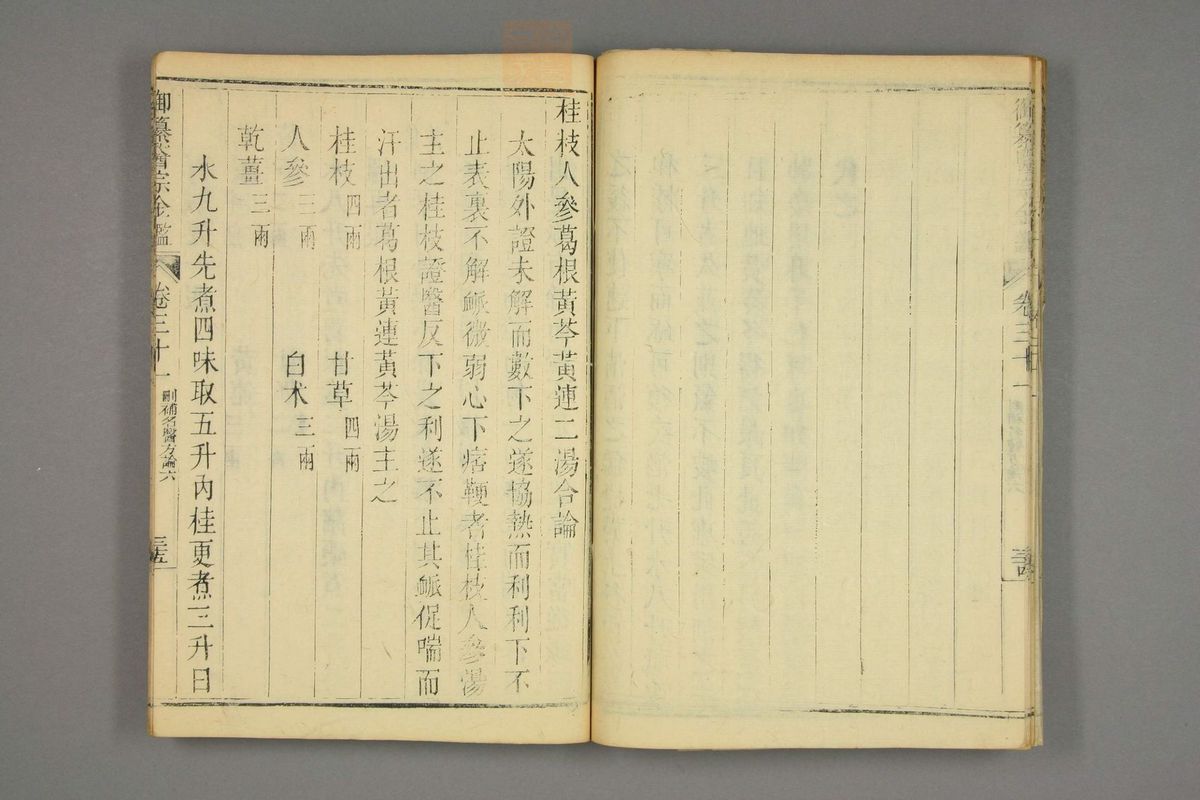 御纂醫宗金鑑 卷三十一 三十四
桂枝人參葛根黃芩黃連二湯合論
太陽外證未解而數下之遂協熱而利利下不
止表裏不解脈微弱心下痞鞕者桂枝人參湯
主之桂枝證醫反下之利遂不止其脈促喘而
汗出者葛根黃連黃芩湯主之
桂枝四兩 甘草四兩
人參三兩 白朮三兩
乾薑三兩
水九升先煮四味取五升內桂更煮三升日
御纂醫宗金鑑 卷三十一 刪補名醫方論六 三十五